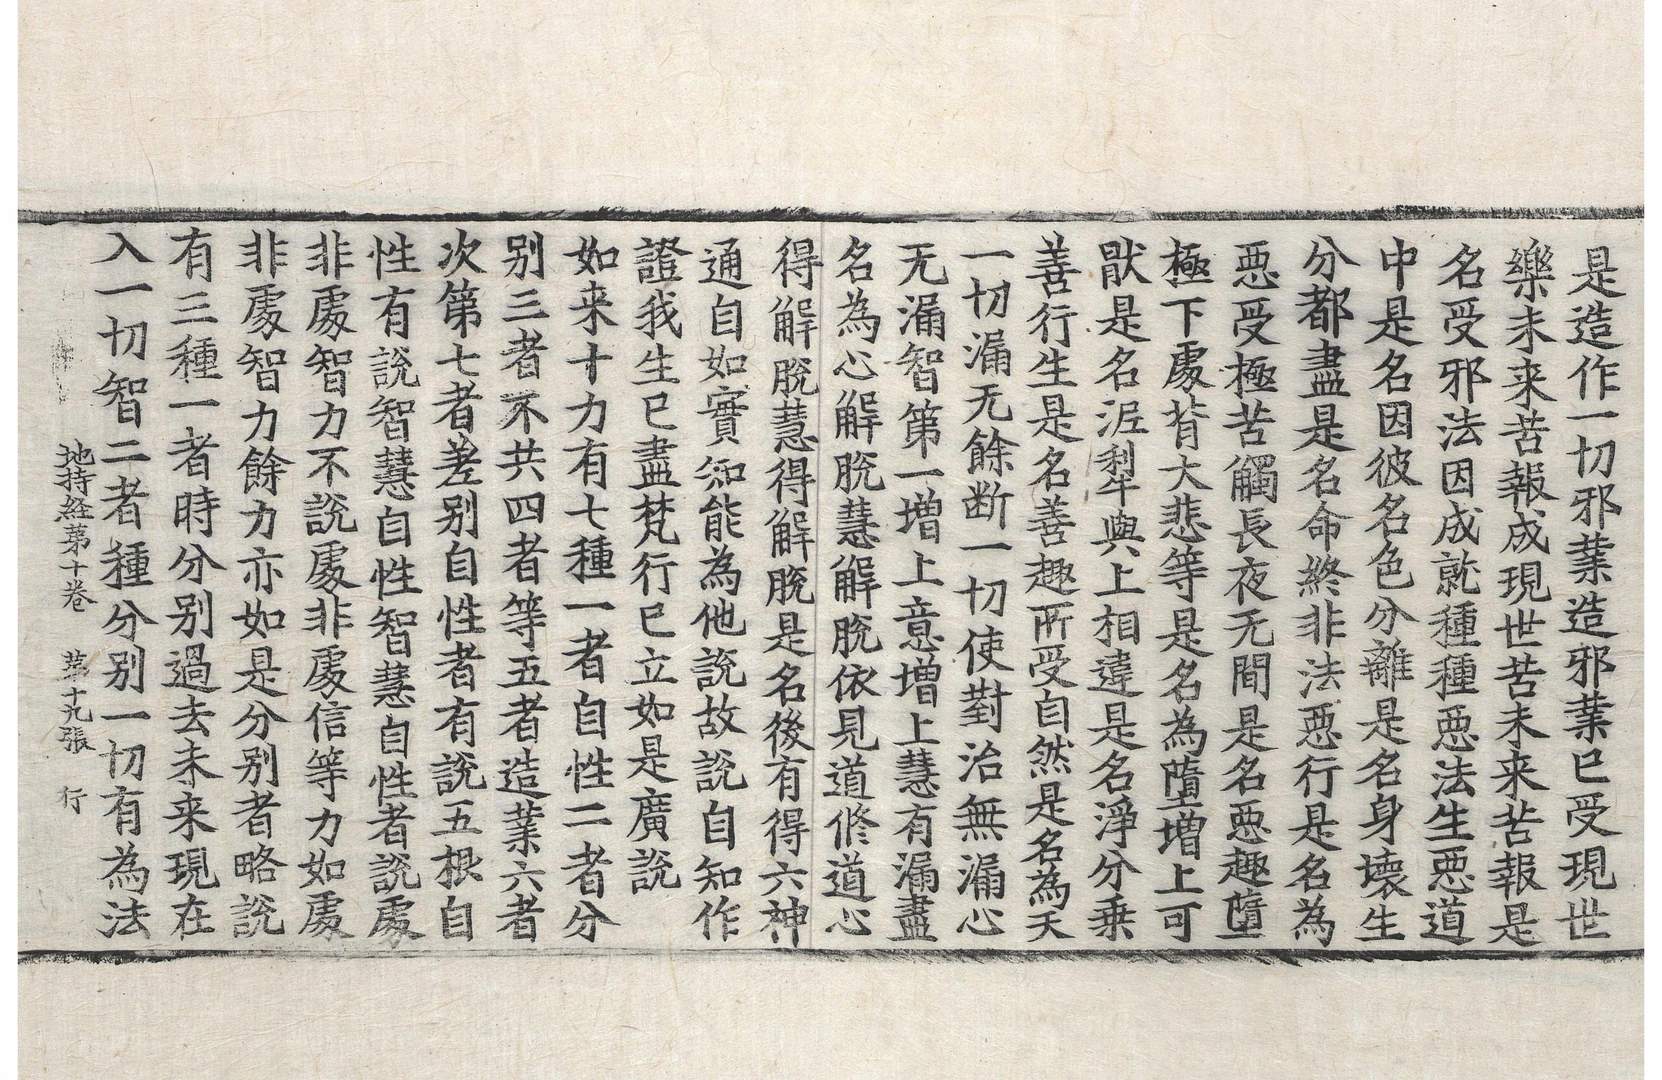 是造作一切邪業造邪業已受現世
樂未来苦報成現世苦未来苦報是
名受邪法因成就種種惡法生惡道
中是名因彼名色分離是名身壞生
分都盡是名命終非法惡行是名為
惡受極苦觸長夜无間是名惡趣墮
極下處背大悲等是名為墮增上可
猒是名泥犁與上相違是名淨分乗
善行生是名善趣所受自然是名為天
一切漏无餘断一切使對治無漏心
无漏智第一增上意增上慧有漏盡
名為心解脫慧解脫依見道修道心
得解脫慧得解脫是名後有得六神
通自如實知能為他說故說自知作
證我生已盡梵行已立如是廣說
如来十力有七種一者自性二者分
别三者不共四者等五者造業六者
次第七者差别自性者有說五根自
性有說智慧自性智慧自性者說處
非處智力不說處非處信等力如處
非處智力餘力亦如是分别者略說
有三種一者時分别過去未来現在
入一切智二者種分别一切有為法
地持經第十卷 第十九張 行